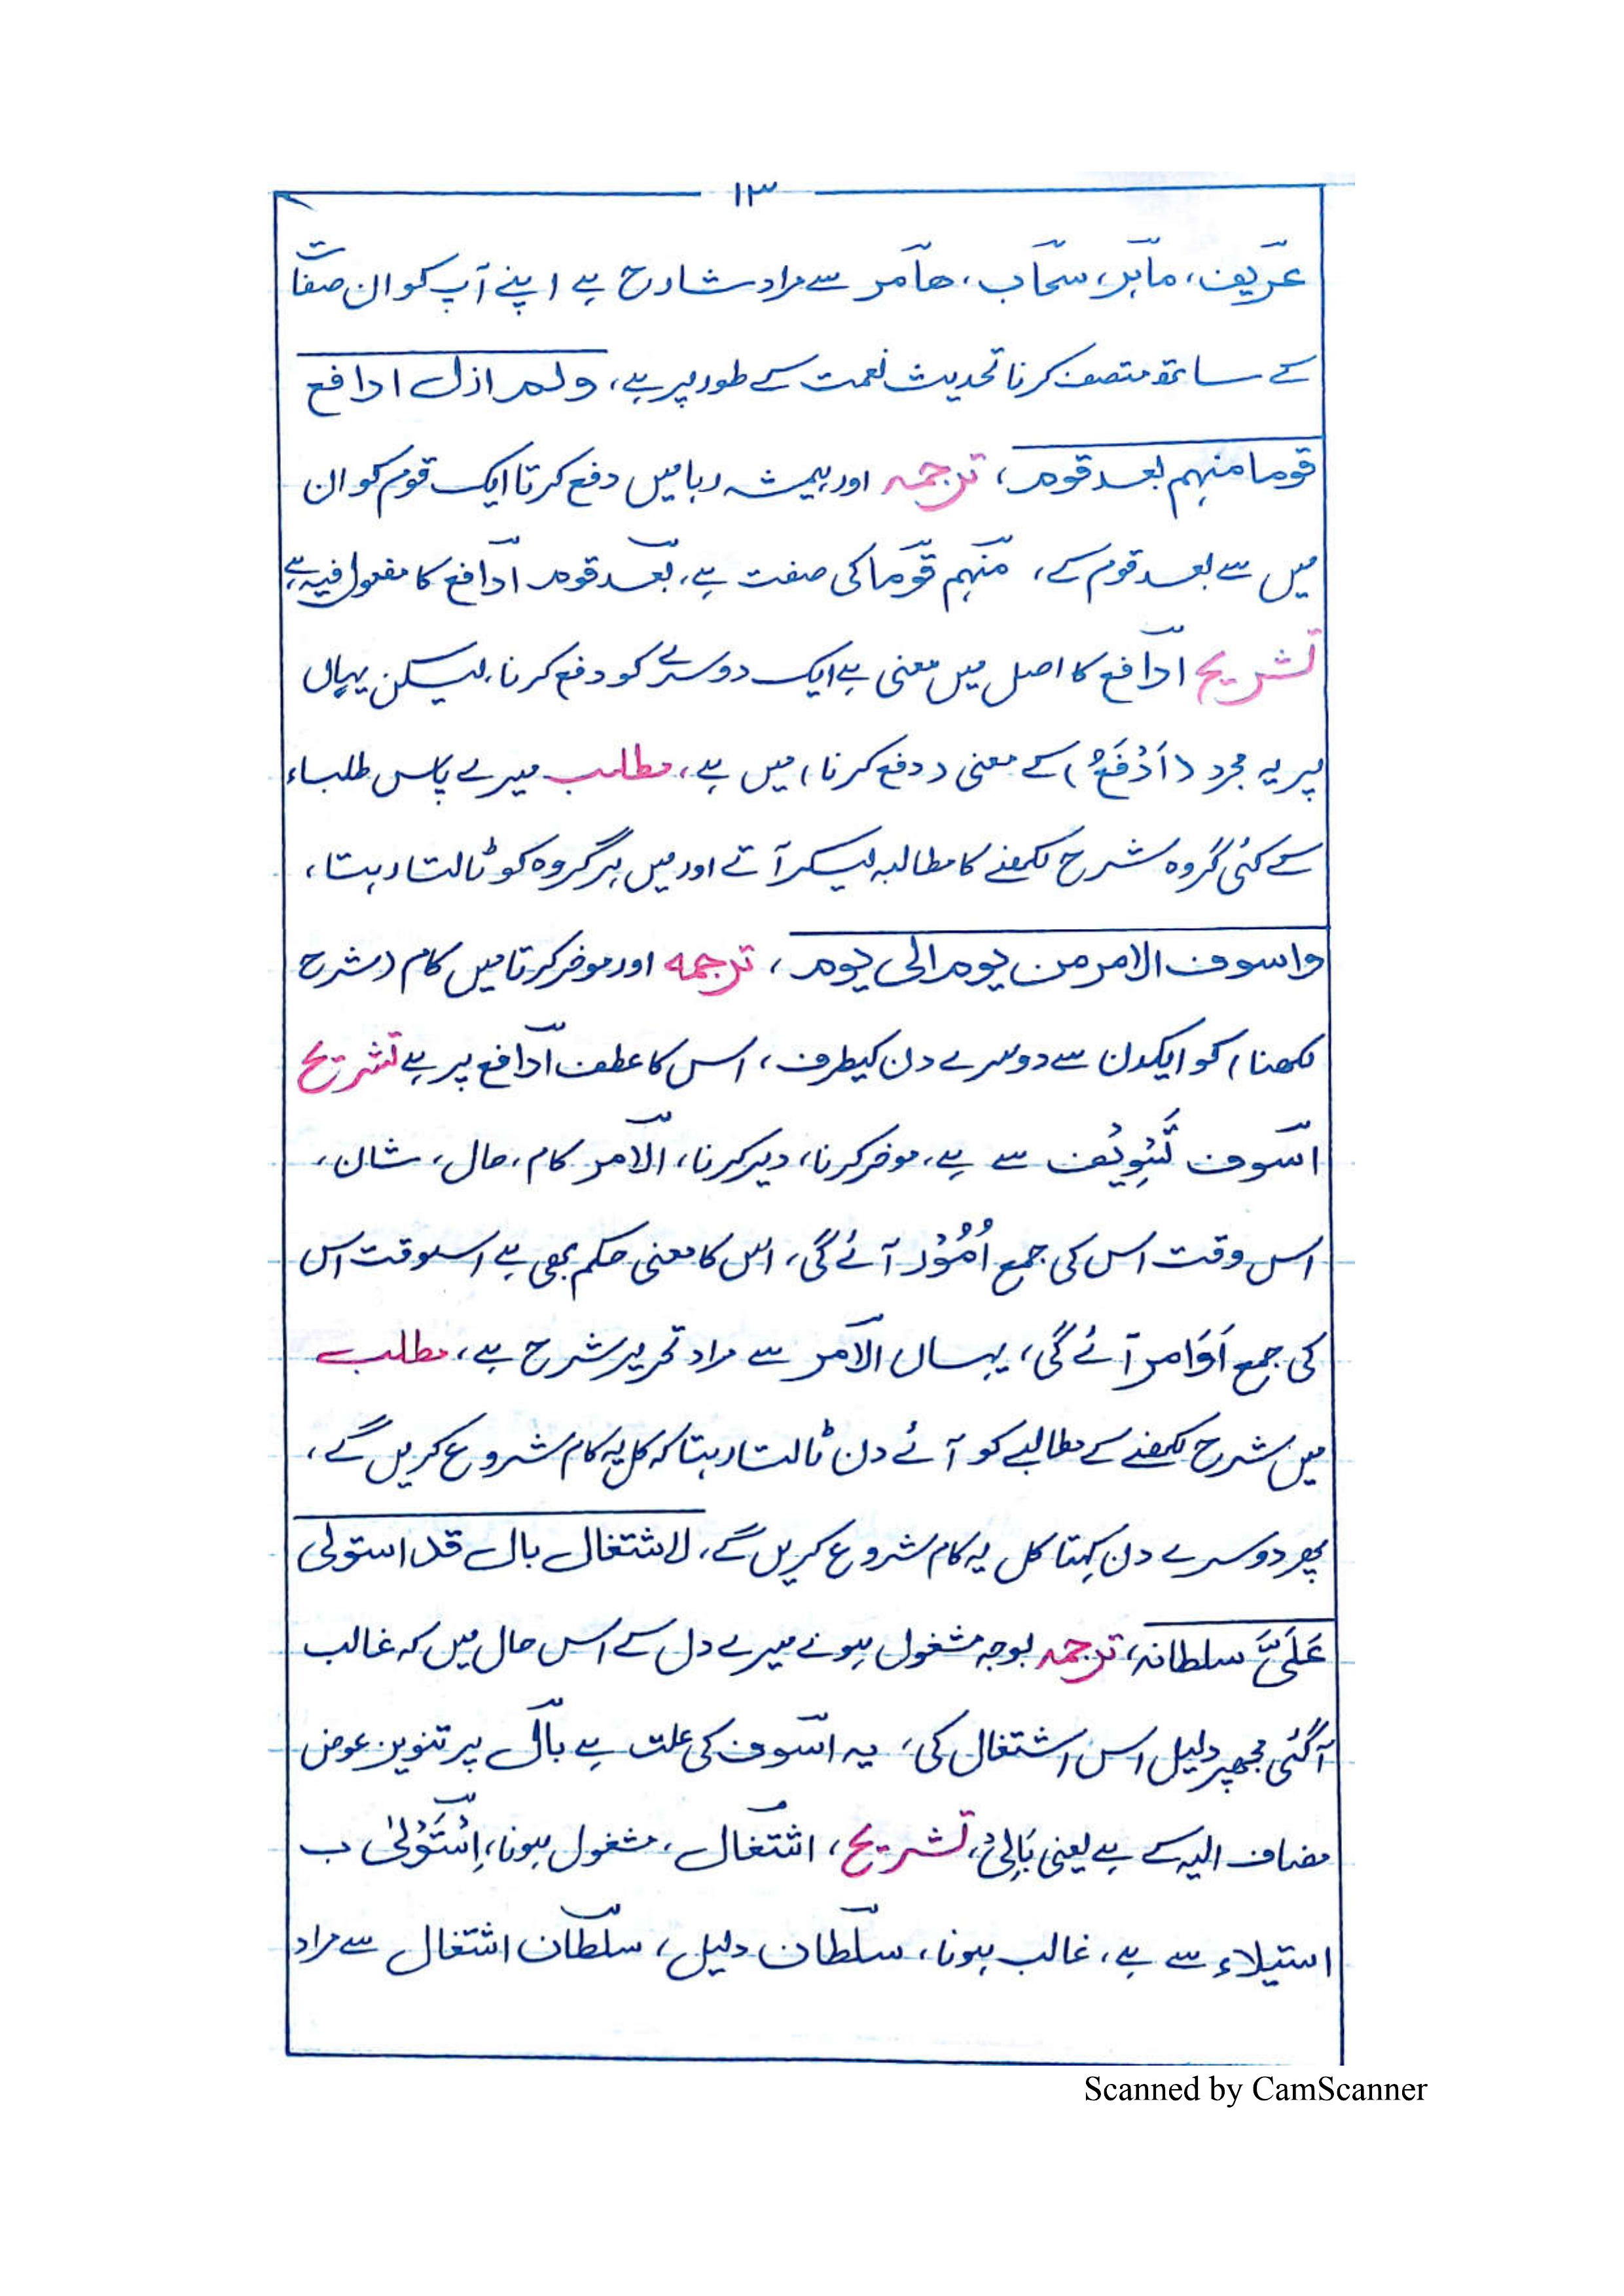 ١٣
عریف، ماہر، سحاب، ھامر سے مراد شارح ہے اپنے آپ کو ان صفات
کے ساتھ متصف کرنا تحدیث نعمت کے طور پر ہے، ولم ازل ادافع
قوما منہم بعد قوم، ترجمہ اور ہمیشہ رہا میں دفع کرتا ایک قوم کو ان
میں سے بعد قوم کے، منہم قوما کی صفت ہے، بعد قوم ادافع کا مفعول فیہ ہے
تشریح ادافع کا اصل میں معنی ہے ایک دوسرے کو دفع کرنا، لیکن یہاں
پر یہ مجرد (اَدْفَعُ) کے معنی (دفع کرنا) میں ہے، مطلب میرے پاس طلباء
کے کئی گروہ شرح لکھنے کا مطالبہ لیکر آتے اور میں ہر گروہ کو ٹالتا رہتا،
واسوف الامر من یوم الی یوم، ترجمہ اور موخر کرتا میں کام (شرح
لکھنا) کو ایکدن سے دوسرے دن کیطرف، اس کا عطف ادافع پر ہے تشریح
اسوف تَسْوِیْف سے ہے، موخر کرنا، دیر کرنا، الامر کام، حال، شان،
اس وقت اس کی جمع اُمُوْر آئے گی، اس کا معنی حکم بھی ہے اسوقت اس
کی جمع اَوَامر آئے گی، یہاں الامر سے مراد تحریر شرح ہے، مطلب
میں شرح لکھنے کے مطالبے کو آئے دن ٹالتا رہتا کہ کل یہ کام شروع کریں گے،
پھر دوسرے دن کہتا کل یہ کام شروع کریں گے، لاشتغال بال قد استولی
عَلَیَّ سلطانہ، ترجمہ بوجہ مشغول ہونے میرے دل کے اس حال میں کہ غالب
آگئی مجھپر دلیل اس اشتغال کی، یہ اسوف کی علت ہے بال پر تنوین عوض
مضاف الیہ کے ہے یعنی بَالِیْ، تشریح، اشتغال، مشغول ہونا، اِسْتَوْلیٰ ب
استیلاء سے ہے، غالب ہونا، سلطان دلیل، سلطان اشتغال سے مراد
Scanned by CamScanner